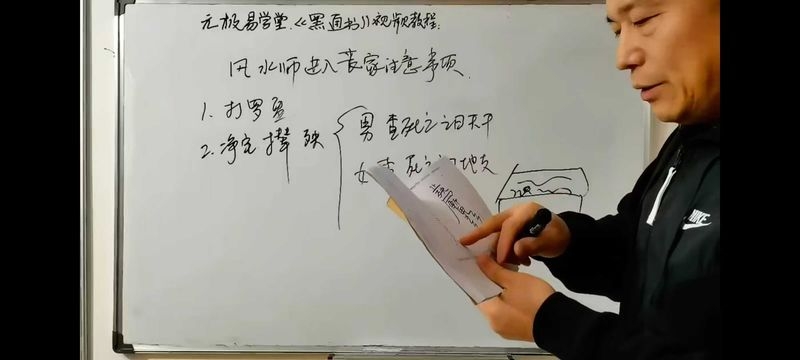 元极易学堂《黑通书》视频教程.
风水师进入丧家注意事项.
1. 打罗盘
2. 净宅撵殃
男 查死之日天干
女 死之 地支
NIKE